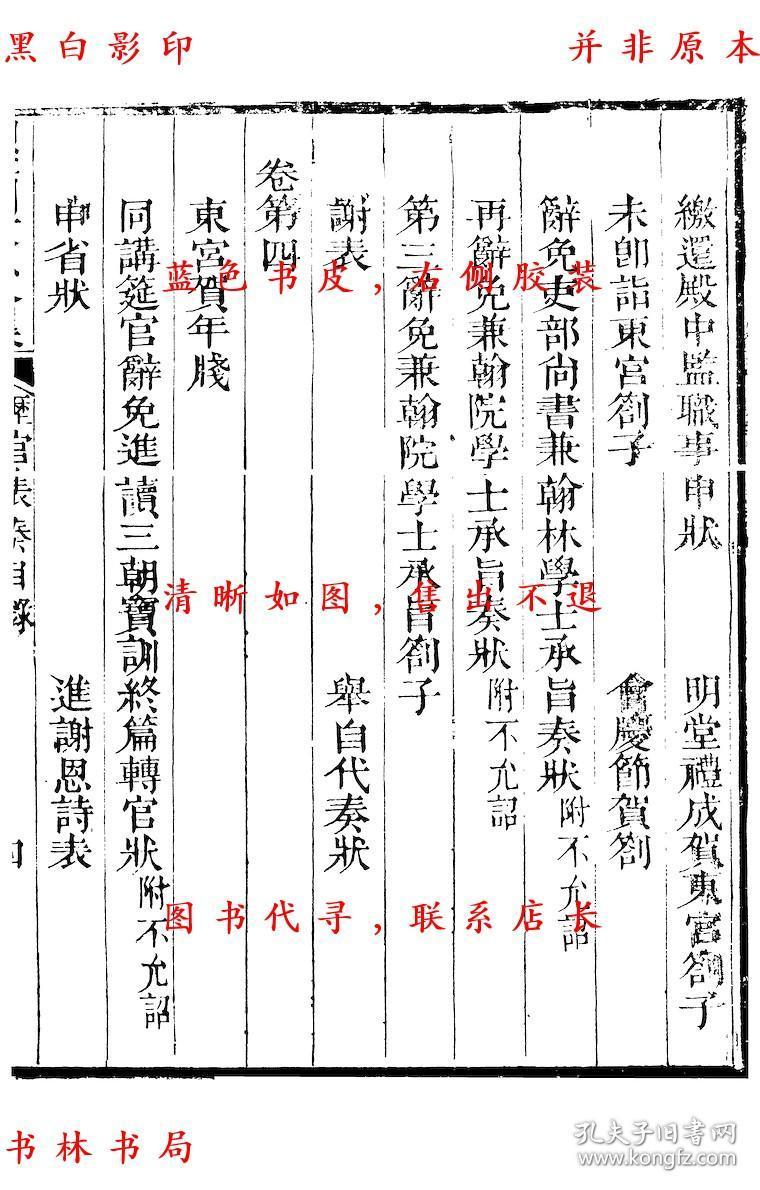 黑白影印
并非原本
繳還殿中監職事申狀 明堂禮成賀東宮劄子
未卽詣東宮劄子 會慶節賀劄
辭免吏部尚書兼翰林學士承旨奏狀 附不允詔
再辭免兼翰院學士承旨奏狀 附不允詔
第三辭免兼翰院學士承旨劄子
謝表 舉自代奏狀
卷第四
東宮賀年牋
同講筵官辭免進讀三朝寶訓終篇轉官狀 附不允詔
申省狀 進謝恩詩表
歷官表奏目錄
四
蓝色书皮,右侧胶装
清晰如图,售出不退
图书代寻,联系店长
书林书局
孔夫子旧书网
www.kongfz.com